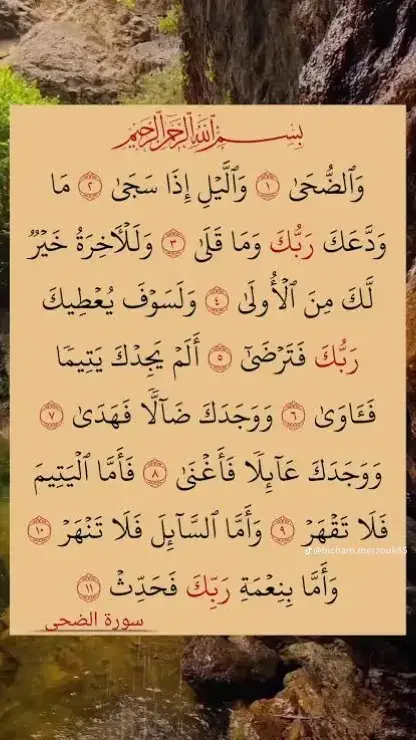 بِسْمِ ٱللَّهِ ٱلرَّحْمَٰنِ ٱلرَّحِيمِ
وَٱلضُّحَىٰ ١ وَٱلَّيْلِ إِذَا سَجَىٰ ٢ مَا
وَدَّعَكَ رَبُّكَ وَمَا قَلَىٰ ٣ وَلَلْأٓخِرَةُ خَيْرٌ
لَّكَ مِنَ ٱلْأُولَىٰ ٤ وَلَسَوْفَ يُعْطِيكَ
رَبُّكَ فَتَرْضَىٰٓ ٥ أَلَمْ يَجِدْكَ يَتِيمًا
فَـَٔاوَىٰ ٦ وَوَجَدَكَ ضَآلًّا فَهَدَىٰ ٧
وَوَجَدَكَ عَآئِلًا فَأَغْنَىٰ ٨ فَأَمَّا ٱلْيَتِيمَ
فَلَا تَقْهَرْ ٩ وَأَمَّا ٱلسَّآئِلَ فَلَا تَنْهَرْ ١٠
@hicham.merzouk85
وَأَمَّا بِنِعْمَةِ رَبِّكَ فَحَدِّثْ ١١
سورة الضحى